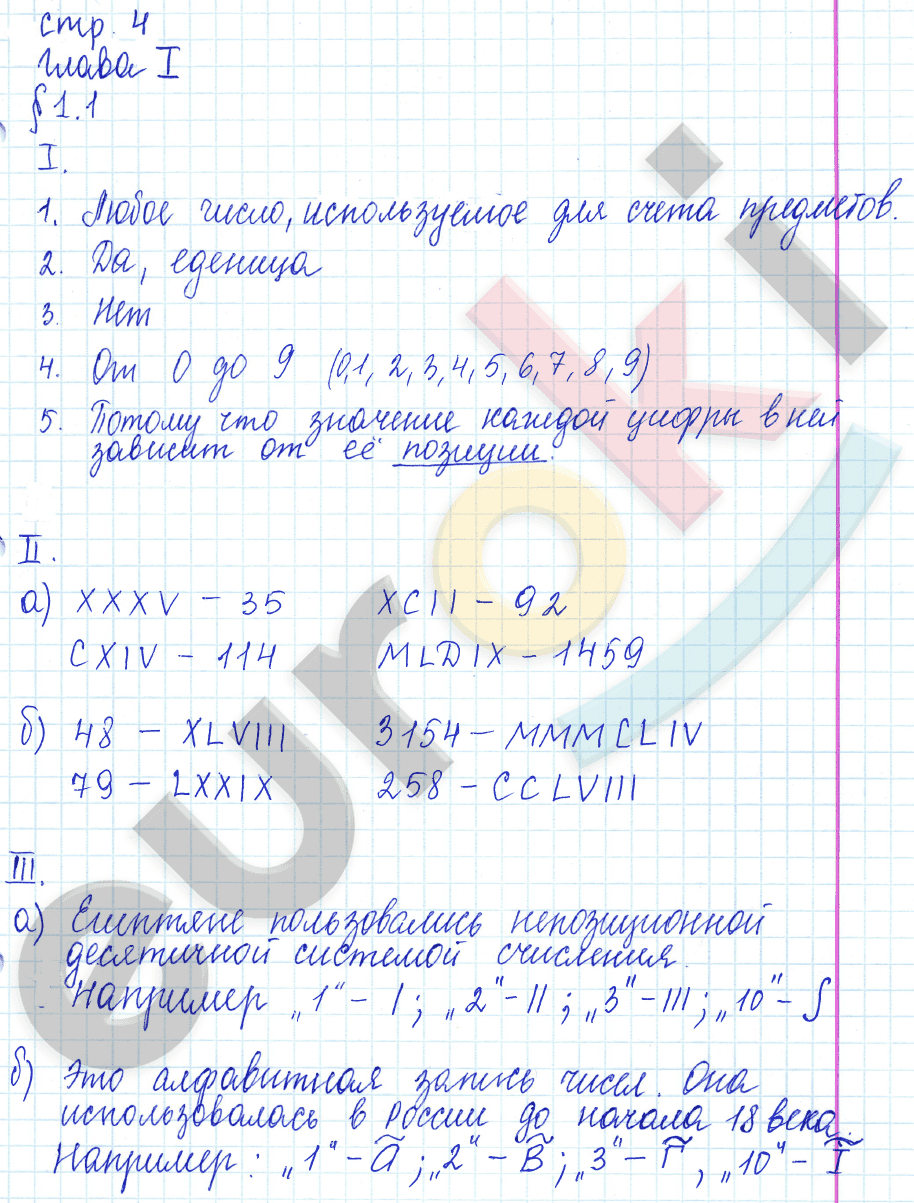 стр. 4
Глава I
§ 1.1
I.
1. Любое число, используемое для счета предметов.
2. Да, еденица
3. Нет
4. От 0 до 9 (0,1, 2, 3, 4, 5, 6, 7, 8, 9)
5. Потому что значение каждой цифры в ней
зависит от её позиции.
II.
а) XXXV – 35 XCII – 92
CXIV – 114 MLDIX – 1459
б) 48 – XLVIII 3154 – MMMCLIV
79 – LXXIX 258 – CCLVIII
III.
а) Египтяне пользовались непозиционной
десятичной системой счисления.
Например „1“ – I; „2“ – II; „3“ – III; „10“ – ∫
б) Это алфавитная запись чисел. Она
использовалась в России до начала 18 века.
Например: „1“ – а̃; „2“ – В̃; „3“ – Г̃, „10“ – Ĩ
euroki